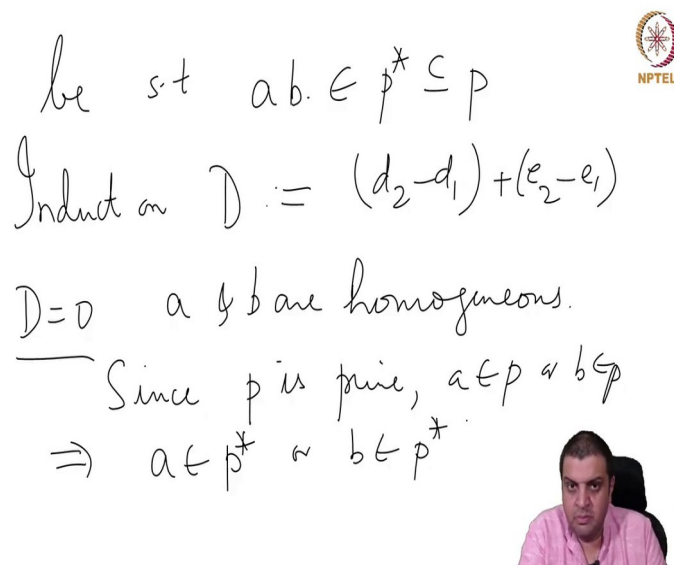 NPTEL
be s.t ab. ∈ p* ⊆ p
Induct on D := (d₂-d₁)+(e₂-e₁)
D=0 a & b are homogeneous.
Since p is prime, a∈p or b∈p
⇒ a∈p* or b∈p*.